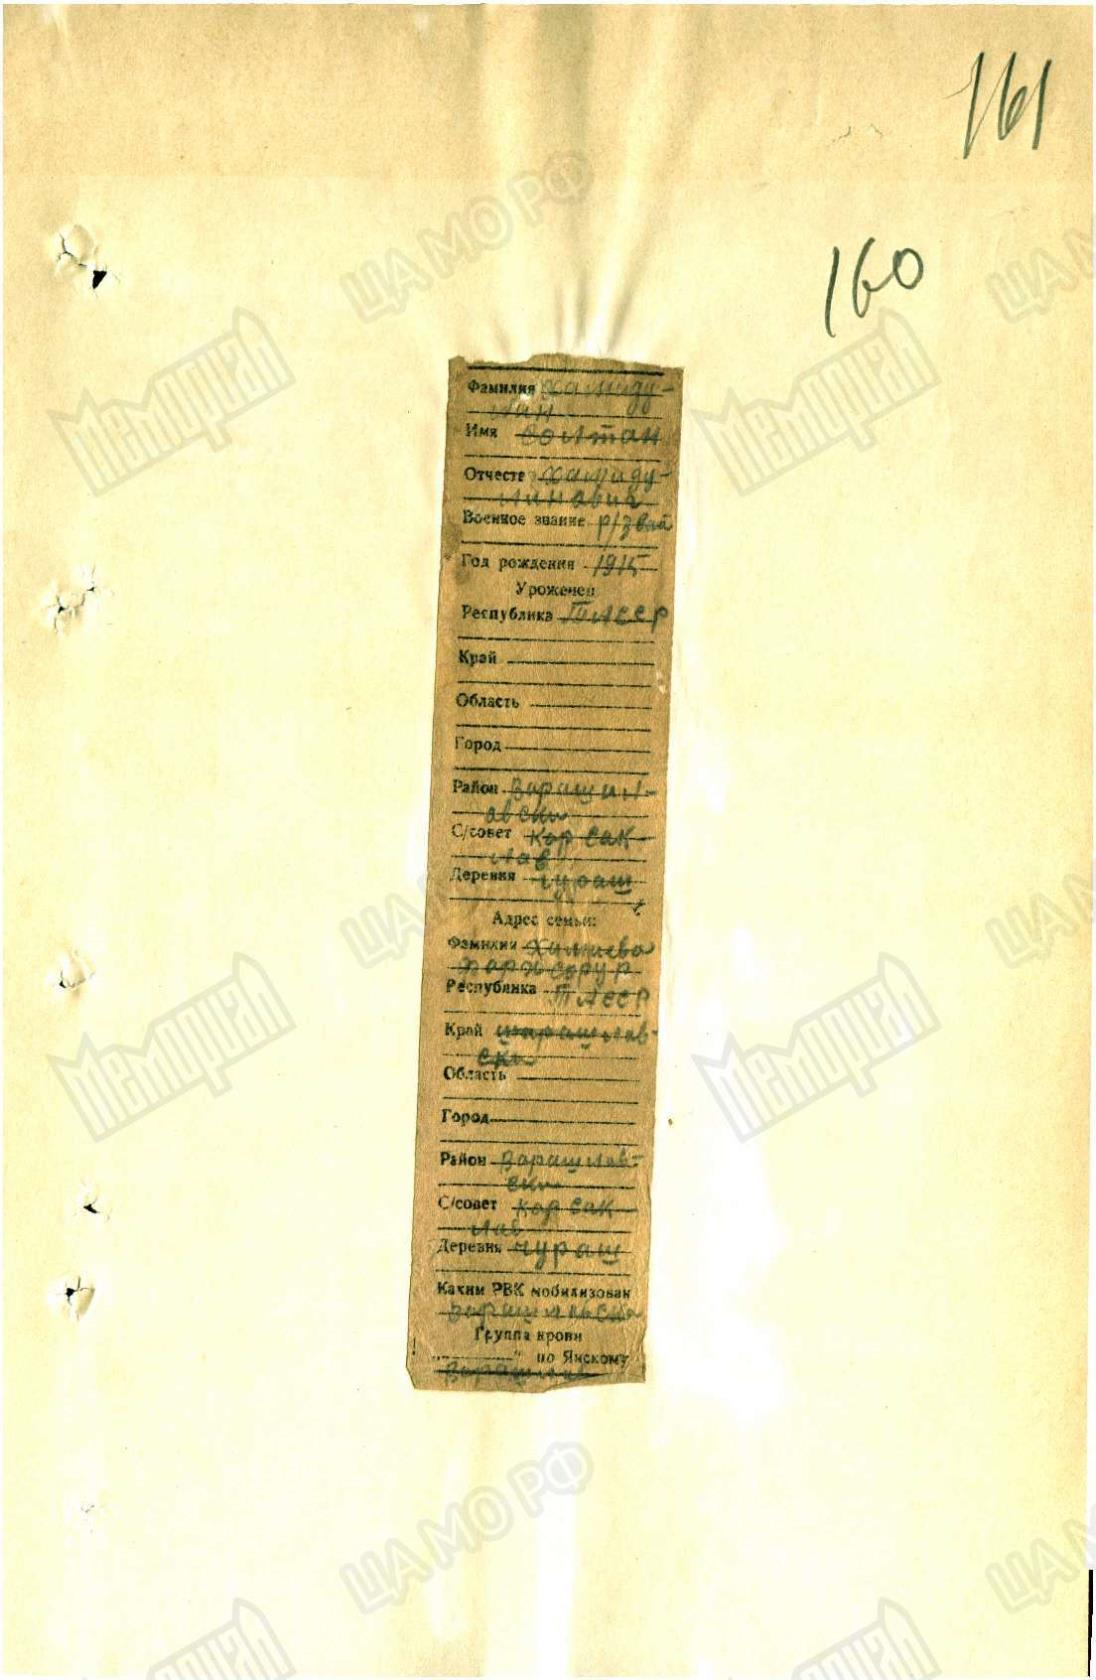 161
160
Фамилия Хамиду-
лин
Имя Солтан
Отчеств Хамиду-
линавич
Военное звание р/звай
Год рождения 1915
Уроженец
Республика ТАССР
Край
Область
Город
Район Варашил-
авски
С/совет Кор сак-
лав
Деревня Чураш
Адрес семьи:
Фамилия
Республика ТАССР
Край
ски
Область
Город
Район Варашлав-
ски
С/совет Кор сак
лав
Деревня Чураш
Каким РВК мобилизован
Группа крови
„ " по Янскому
Варашлав
Мемориал
ЦАМО РФ